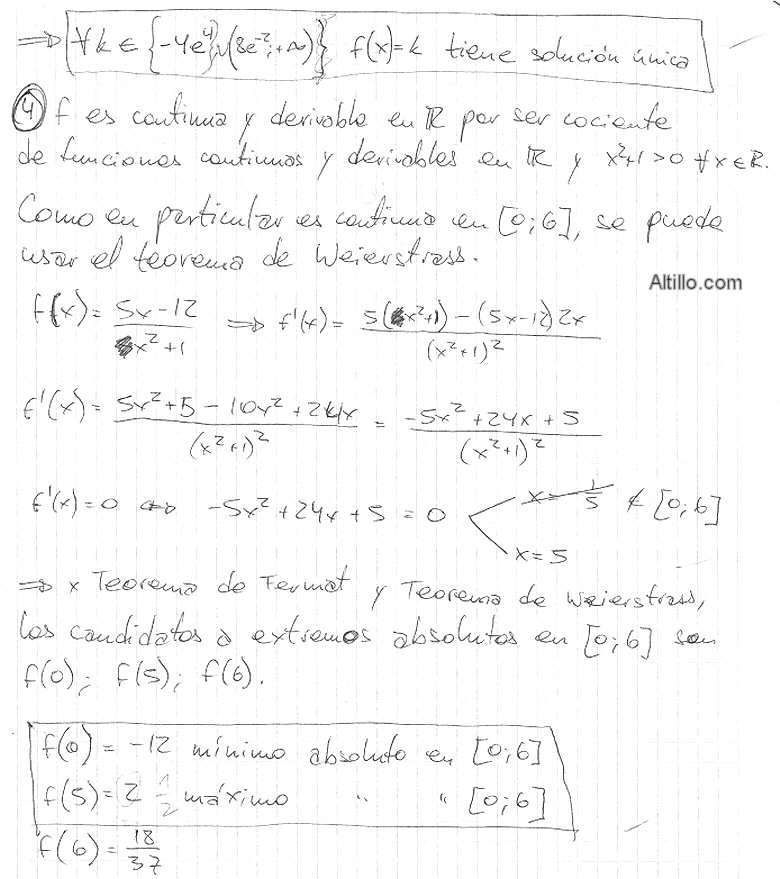 ⇒ ∀k ∈ {-4e⁴}∪(8e⁻²;+∞)} f(x)=k tiene solución única
④ f es continua y derivable en ℝ por ser cociente
de funciones continuas y derivables en ℝ y x²+1>0 ∀x∈ℝ.
Como en particular es continua en [0;6], se puede
usar el teorema de Weierstrass.
Altillo.com
f(x)= (5x-12)/(x²+1) ⇒ f'(x)= (5(x²+1)-(5x-12)2x)/(x²+1)²
f'(x)= (5x²+5-10x²+24x)/(x²+1)² = (-5x²+24x+5)/(x²+1)²
f'(x)=0 ⇔ -5x²+24x+5=0 x=-1/5 ∉ [0;6]
x=5
⇒ x Teorema de Fermat y Teorema de Weierstrass,
los candidatos a extremos absolutos en [0;6] son
f(0); f(5); f(6).
f(0)=-12 mínimo absoluto en [0;6]
f(5)= 1/2 máximo " " [0;6]
f(6)= 18/37